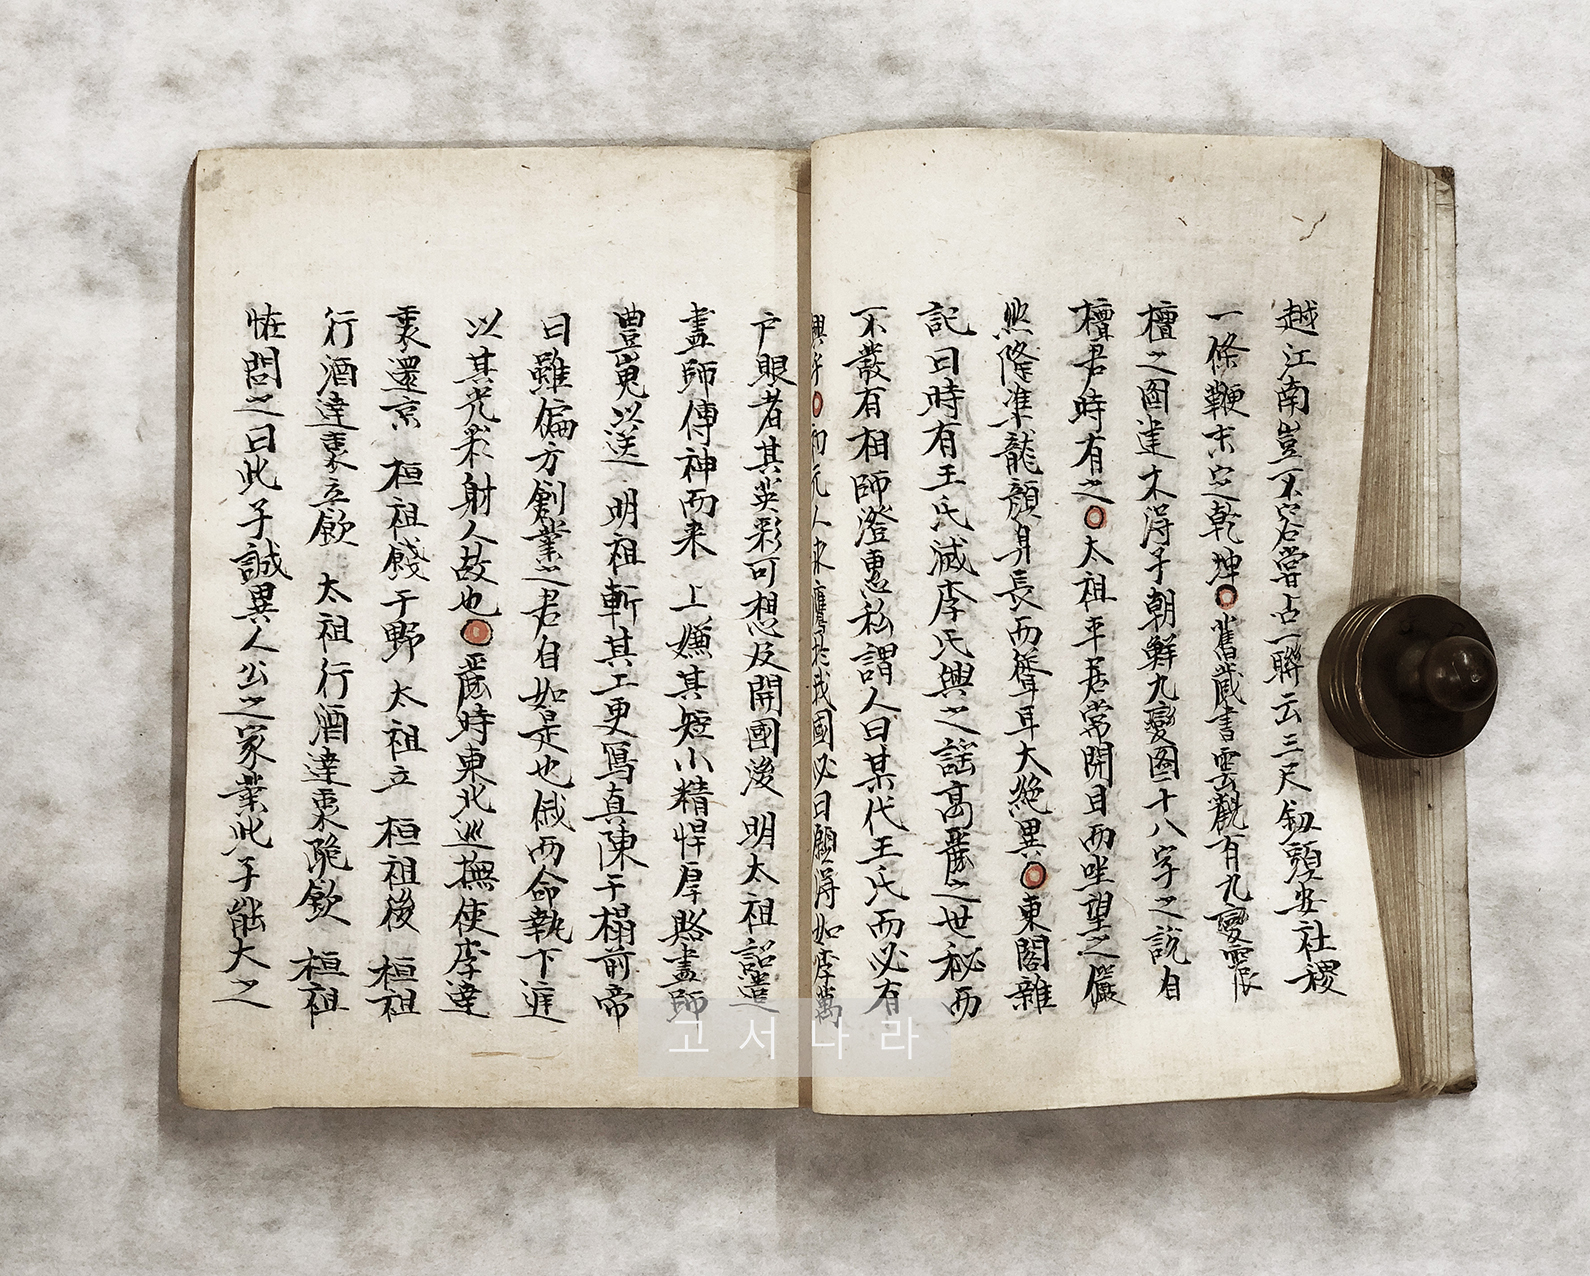 越江南豈不容嘗占一聯云三尺釼頭安社稷
一條鞭末定乾坤○舊藏書雲觀有九變震
檀之圖建木得子朝鮮九變圖十八字之說自
檀君時有之○太祖平居常閉目而坐望之儼
然隆準龍顏身長而聳耳大絶異○東閣雜
記曰時有王氏滅李氏興之謡高麗之世秘而
不叢有相師澄惠私謂人曰某代王氏而必有
興乎○初元人求鷹於我國必曰願得如李萬
户眼者其英彩可想及開國後 明太祖詔遣
畫師傳神而来 上嫌其短小精悍厚賂畫師
豊 以送 明祖斬其工更寫真陳于榻前帝
曰雖偏方創業之君自如是也俄而命執下㢠
以其光彩射人故也○麗時東北巡撫使李達
衷還京 桓祖餞于野 太祖立 桓祖後 桓祖
行酒達衷立飲 太祖行酒達衷跪飲 桓祖
恠問之曰此子誠異人公之家業此子能大之
고서나라